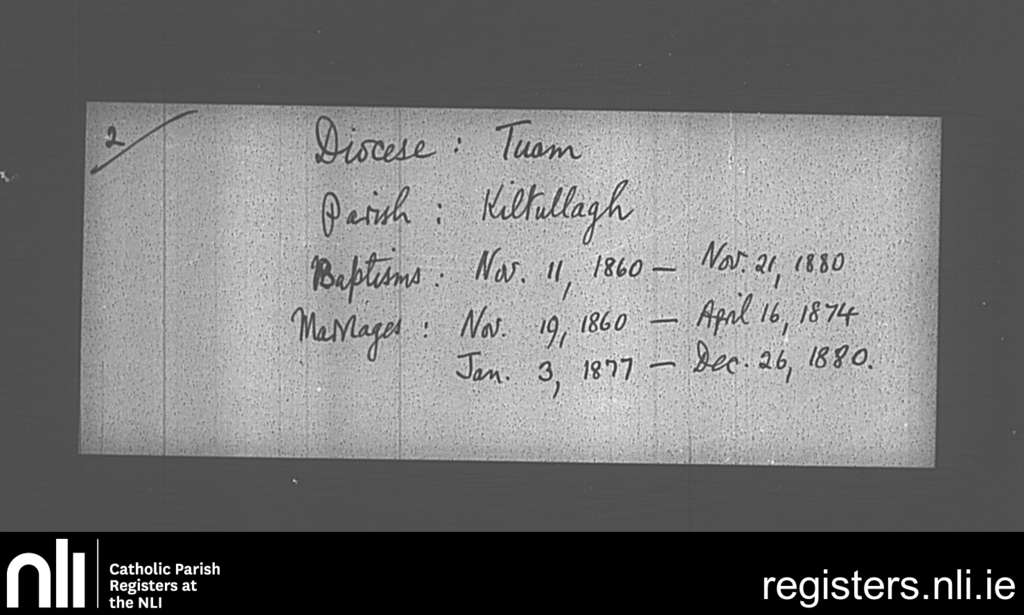 2
Diocese : Tuam
Parish : Kiltullagh
Baptisms : Nov. 11, 1860 — Nov. 21, 1880
Marriages : Nov. 19, 1860 — April 16, 1874
Jan. 3, 1877 — Dec. 26, 1880.
nli
Catholic Parish
Registers at
the NLI
registers.nli.ie